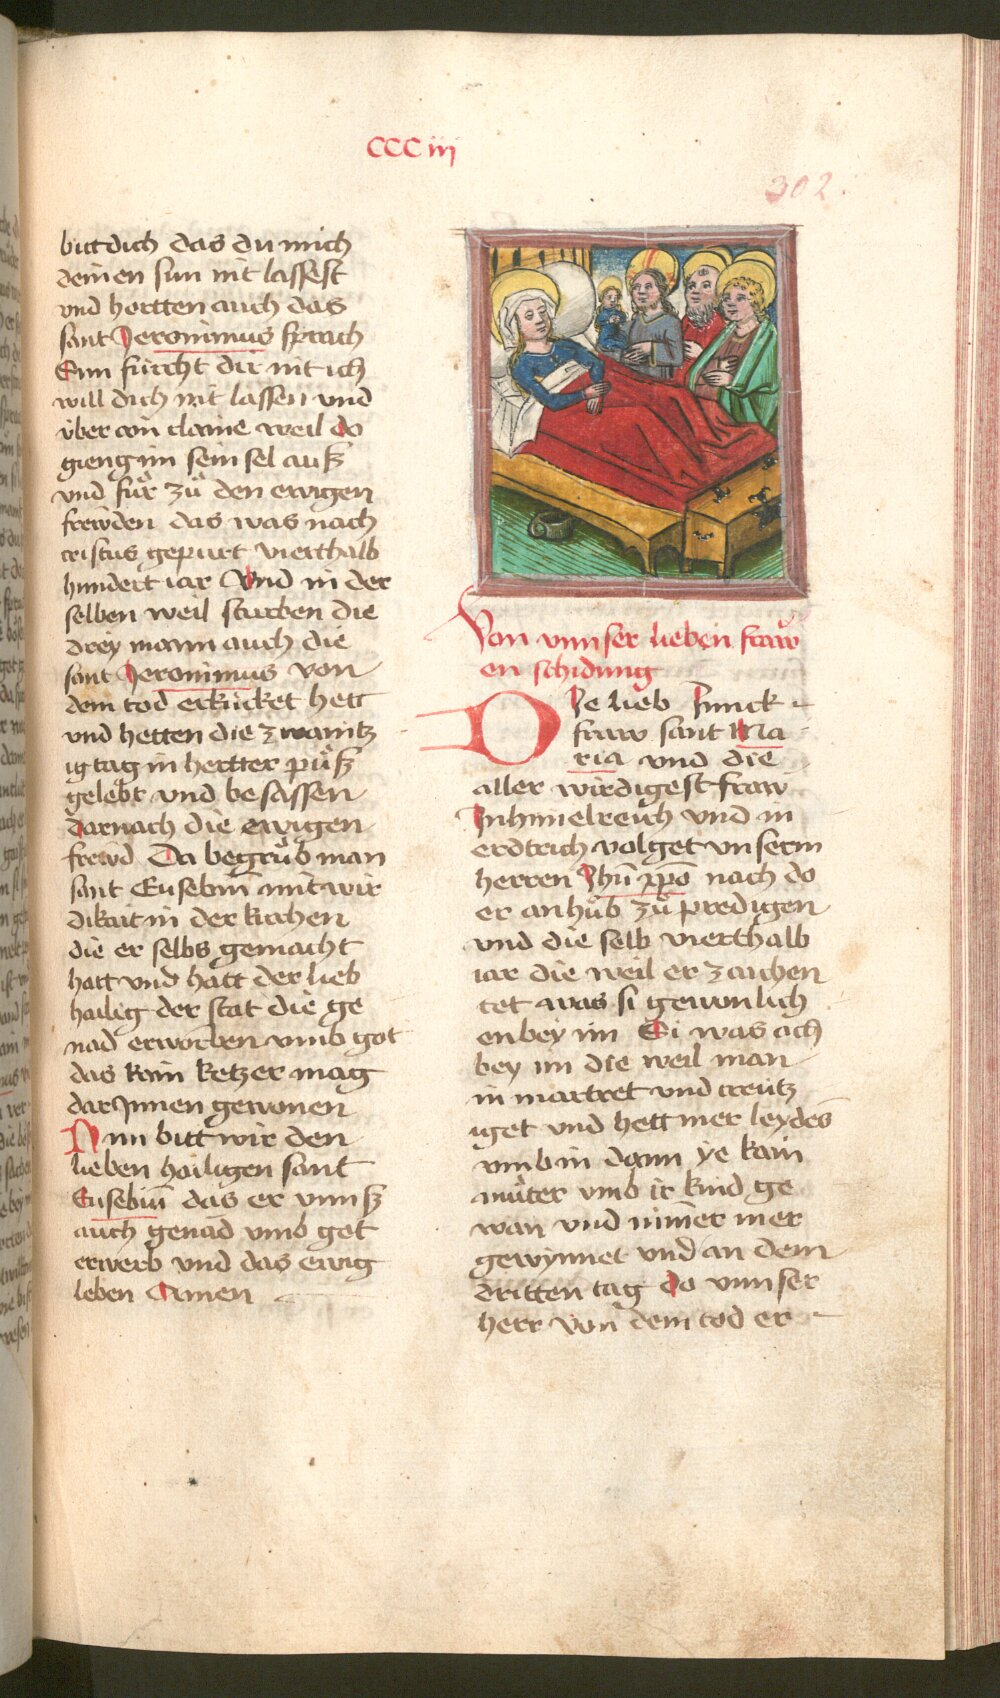 CCCiii
302
bitt dich das du mich
deinen sun nit lassest
vnd hortten auch das
sant Jeronimus sprach
Sun fürcht dir nit ich
will dich nit lassen vnd
über ain claine weil do
gieng im sein sel auß
vnd fůr zů den ewigen
frewden das was nach
cristus gepurt vierthalb
hundert iar Vnd in der
selben weil sturben die
drey mann auch die
sant Jeronimus von
dem tod erkücket hett
vnd hetten die zwaintz
ig tag in hertter půß
gelebt vnd besassen
darnach die ewigen
frewd Da begrůb man
sant Eusebiū mit wir
dikait in der kirchen
die er selbs gemacht
hatt vnd hatt der lieb
hailig der stat die ge
nad erworben vmb got
das kain ketzer mag
dar Jnnen gewonen
Nun bitt wir den
lieben hailigen sant
Eusebiū das er vnnß
auch genad vmb got
erwerb vnd das ewig
leben Amen
Von vnnser lieben fraw
en schidung
DJe lieb Junck
fraw sant Ma
ria vnd die
aller wirdigest fraw
Jn himelreich vnd in
erdtrich volget vnserm
herren Jhū xp̄o nach do
er anhůb zů predigen
vnd die selb vierthalb
iar die weil er zaichen
tet was si gewonlich
en bey im Si was ach
bey im die weil man
in martret vnd creütz
iget vnd hett mer leydes
vmb in dann ye kain
můter vmb ir kind ge
wan vnd nimer mer
gewynnet vnd an dem
dritten tag do vnnser
herr von dem tod er